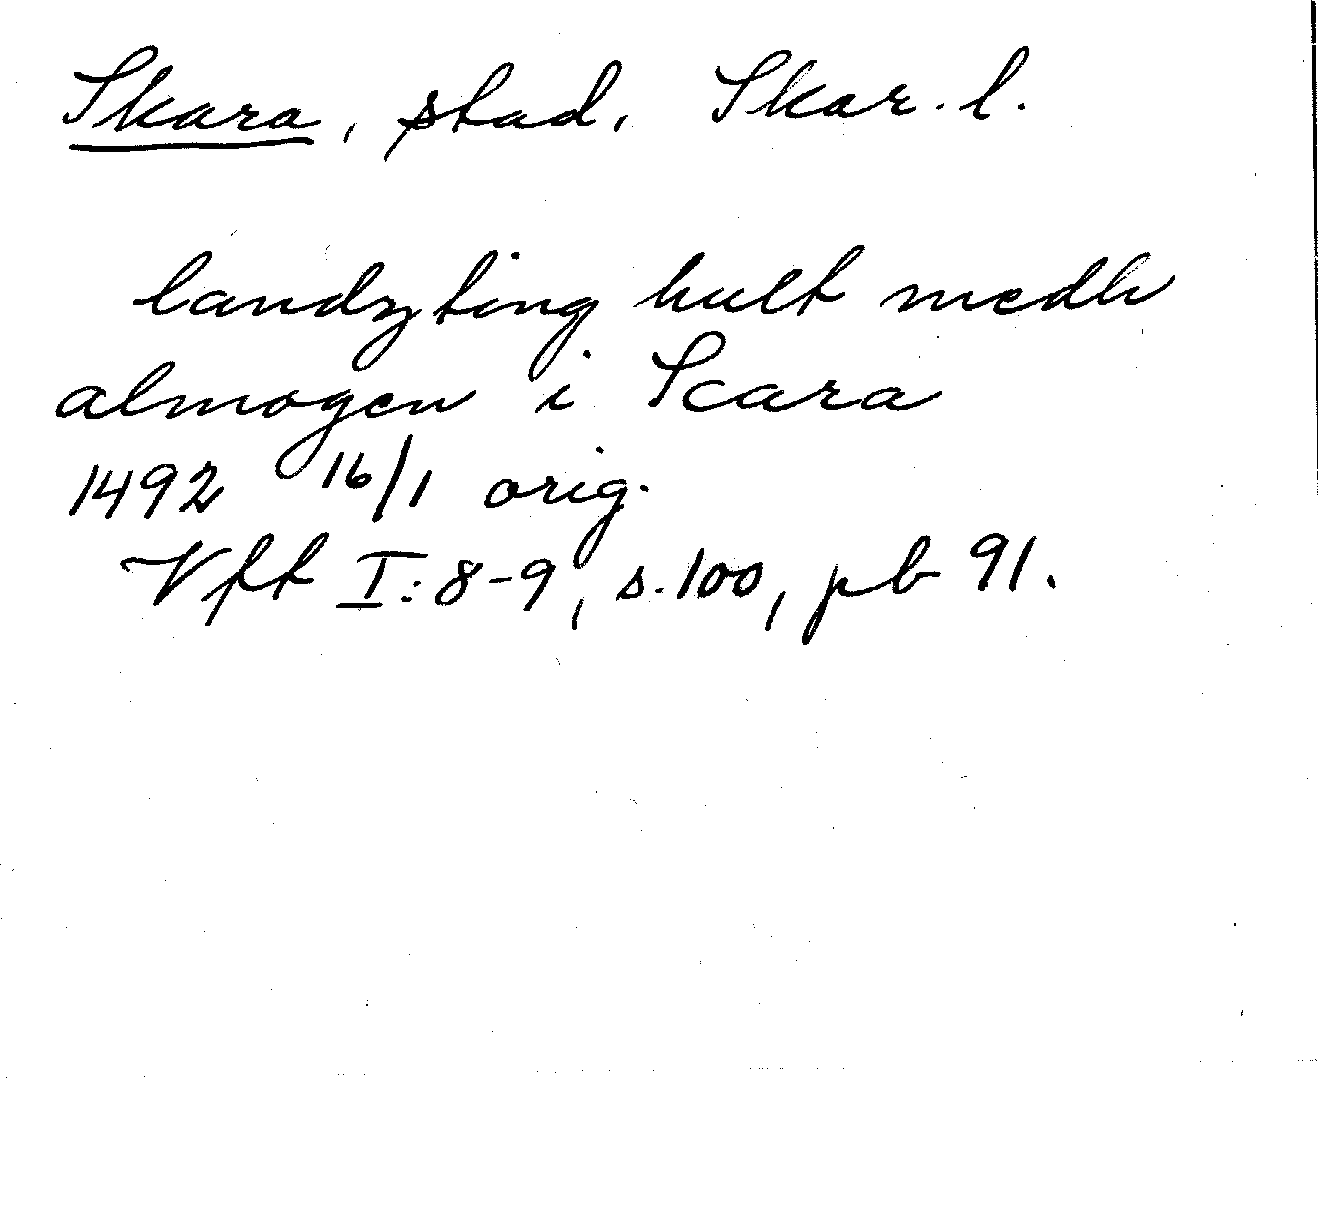 Skara, stad, Skar. l.
landzting hult medh
almogen i Scara
1492 16/1 orig.
Vft I:8-9, s.100, pb 91.